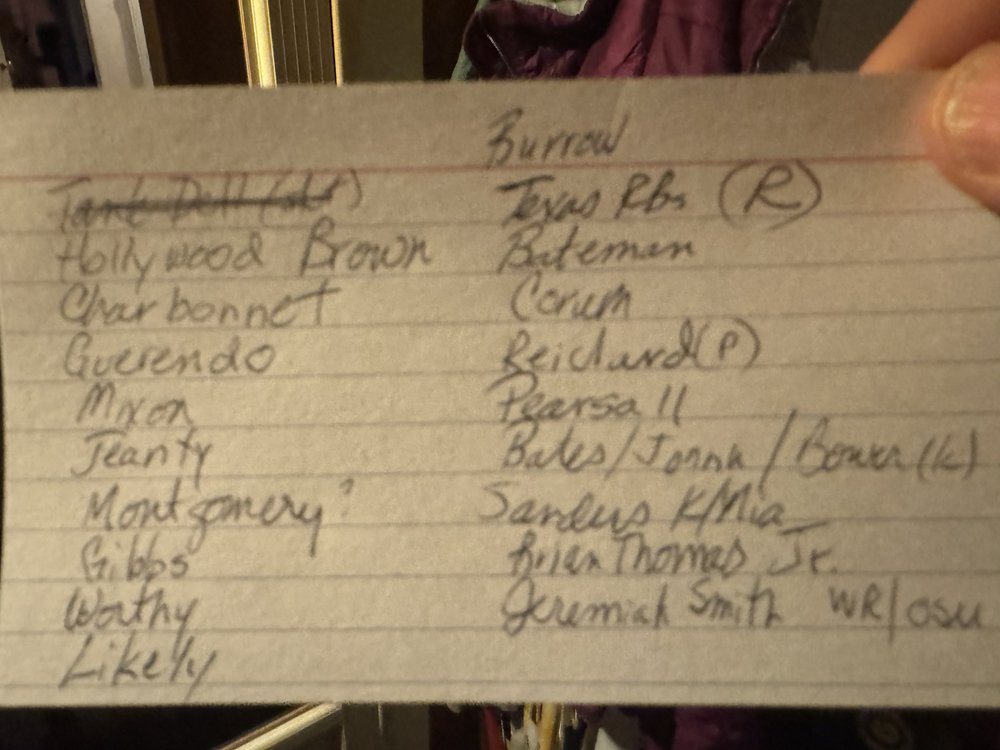 Burrow
Tank Dell (alt)
Hollywood Brown
Charbonnet
Guerendo
Mixon
Jeanty
Montgomery?
Gibbs
Worthy
Likely
Texas RBs (R)
Bateman
Corum
Reichard (P)
Pearsall
Bates / / (K)
Sanders K/Mia
Brian Thomas Jr.
Jeremiah Smith WR/OSU